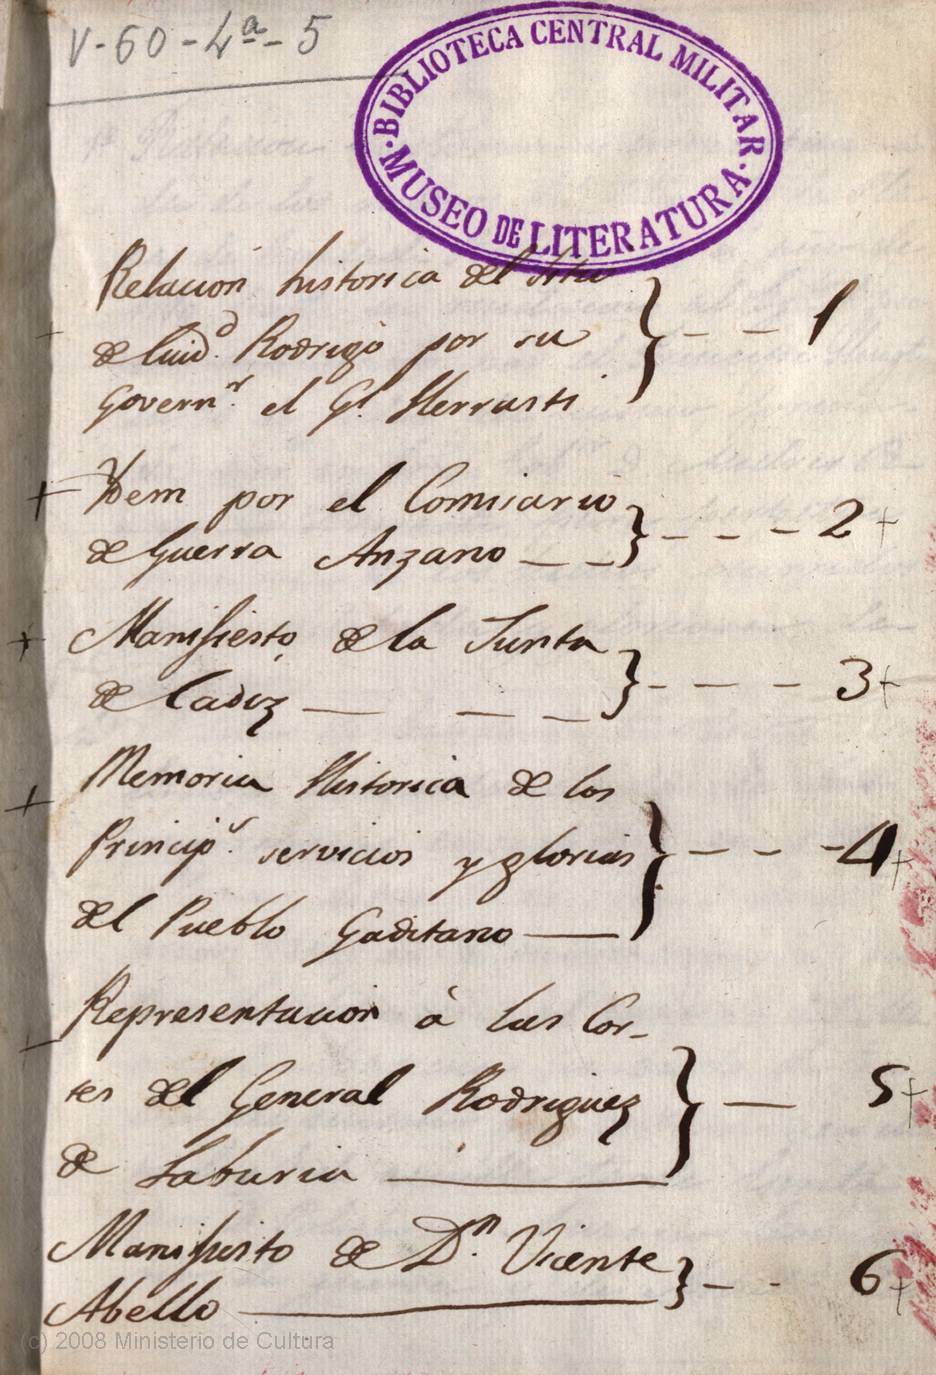 V-60-4ª-5
BIBLIOTECA CENTRAL MILITAR
MUSEO DE LITERATURA
Relacion historica del Sitio
de Ciudd. Rodrigo por su
Governr. el Gl. Herrasti } - - 1
Ydem por el Comisario
de Guerra Anzano - - } - - - 2
Manifiesto de la Junta
de Cadiz - - - } - - - 3
Memoria Historica de los
Princips. servicios y glorias
del Pueblo Gaditano - } - - - 4
Representacion à las Cor-
tes del General Rodriguez
de Laburia - } - 5
Manifiesto de Dn. Vicente
Abello - } - - 6
(c) 2008 Ministerio de Cultura